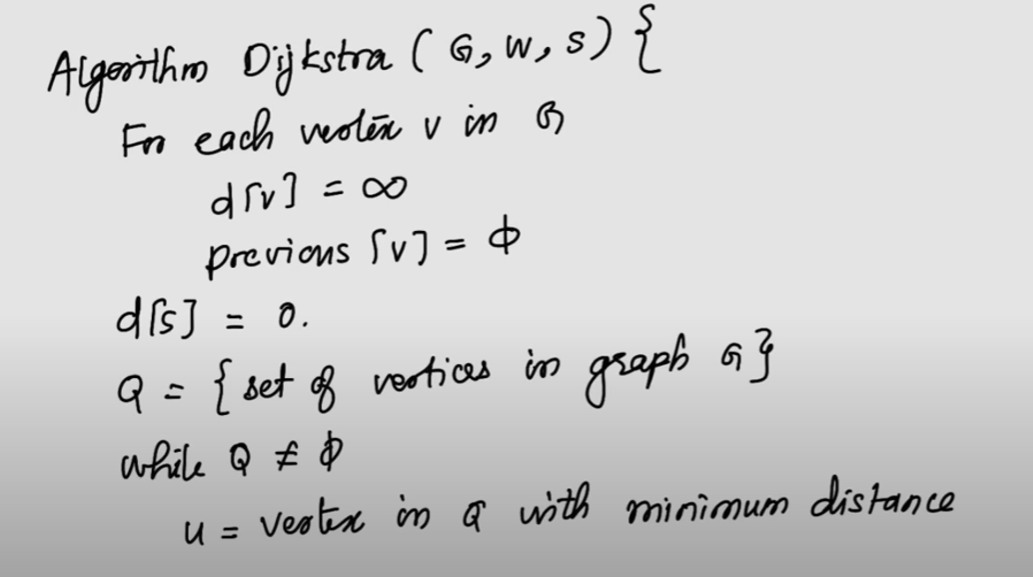 Algorithm Dijkstra ( G, W, S) {
For each vertex v in G
d[v] = ∞
previous [v] = ϕ
d[s] = 0.
Q = { set of vertices in graph G }
while Q ≠ ϕ
u = vertex in Q with minimum distance